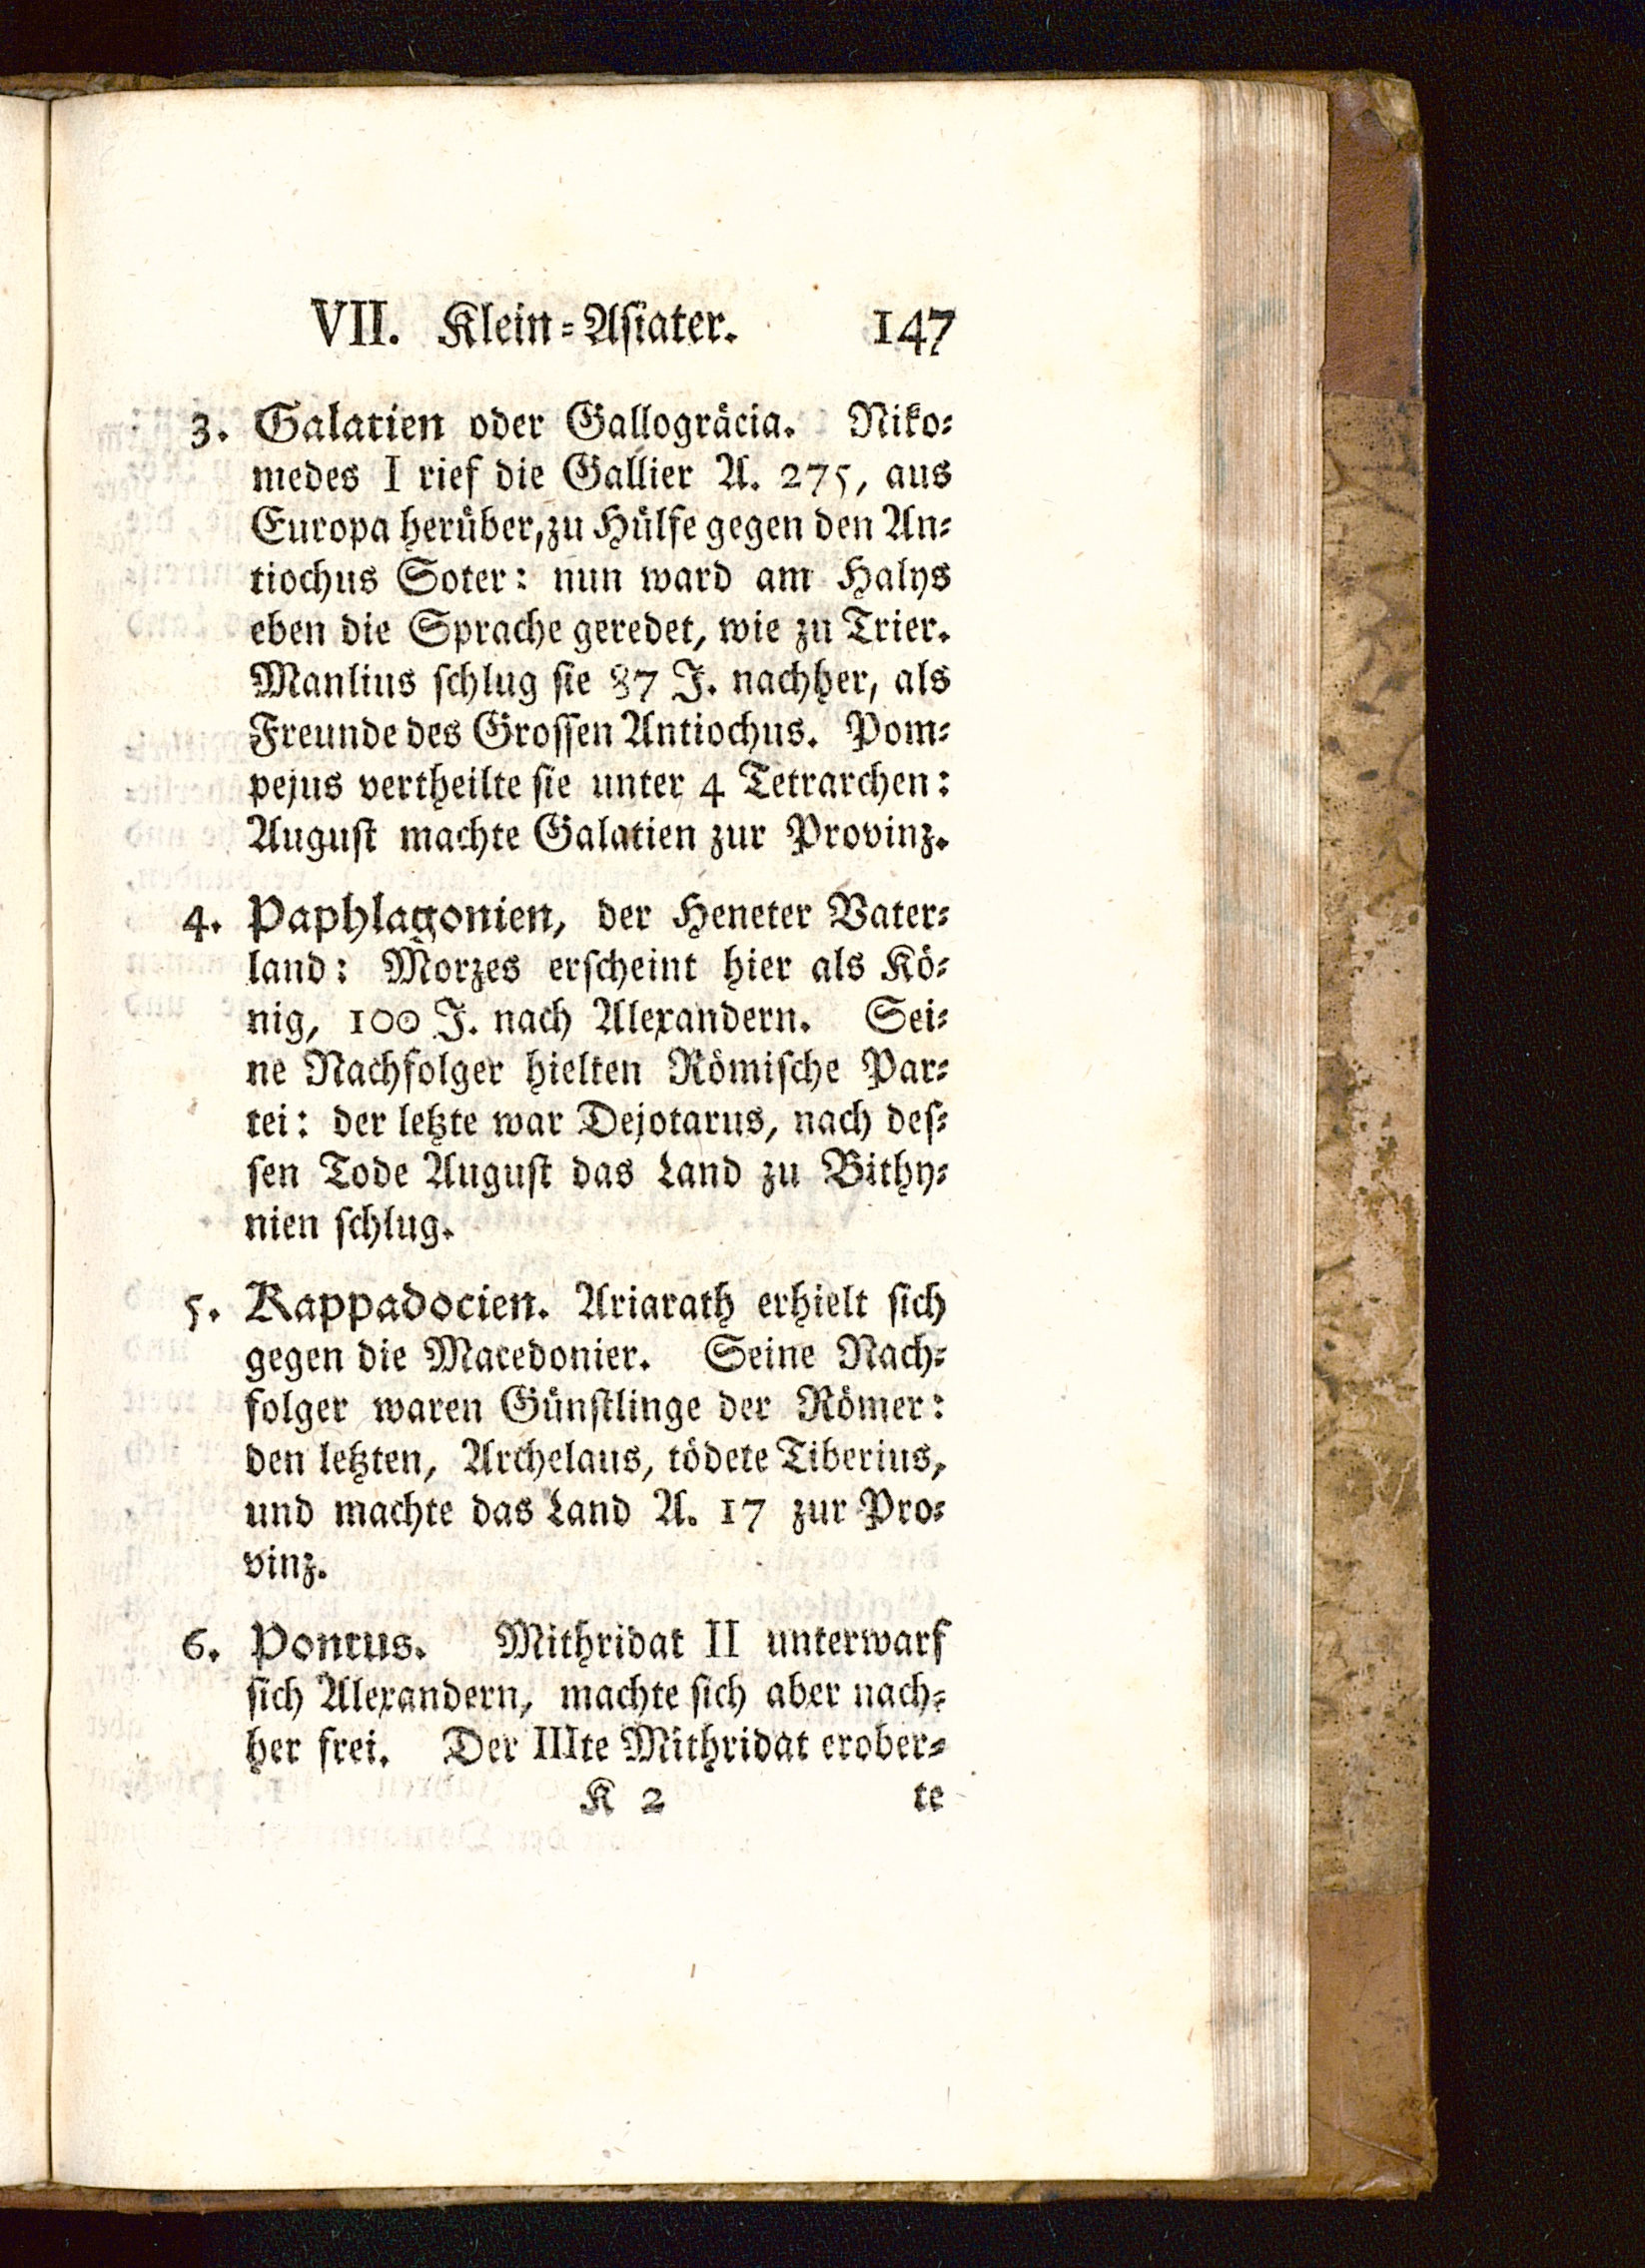 VII. Klein-Asiater. 147
3. Galatien oder Gallogräcia. Niko-
medes I rief die Gallier A. 275, aus
Europa herüber, zu Hülfe gegen den An-
tiochus Soter: nun ward am Halys
eben die Sprache geredet, wie zu Trier.
Manlius schlug sie 87 J. nachher, als
Freunde des Grossen Antiochus. Pom-
pejus vertheilte sie unter 4 Tetrarchen:
August machte Galatien zur Provinz.
4. Paphlagonien, der Heneter Vater-
land: Morzes erscheint hier als Kö-
nig, 100 J. nach Alexandern. Sei-
ne Nachfolger hielten Römische Par-
tei: der letzte war Dejotarus, nach des-
sen Tode August das Land zu Bithy-
nien schlug.
5. Kappadocien. Ariarath erhielt sich
gegen die Macedonier. Seine Nach-
folger waren Günstlinge der Römer:
den letzten, Archelaus, tödete Tiberius,
und machte das Land A. 17 zur Pro-
vinz.
6. Pontus. Mithridat II unterwarf
sich Alexandern, machte sich aber nach-
her frei. Der IIIte Mithridat erober-
K 2 te